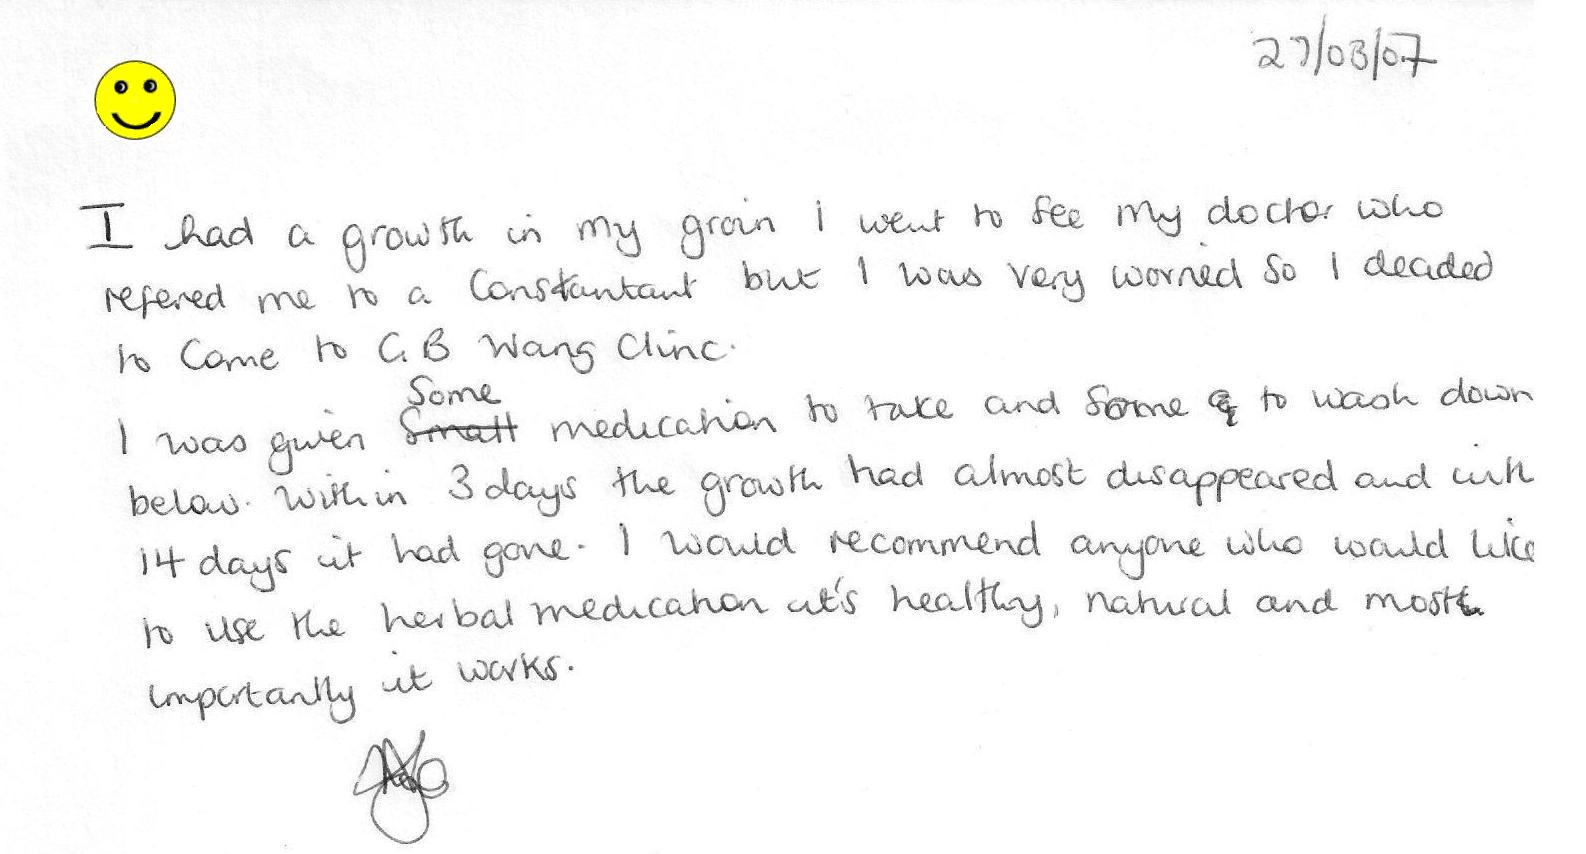 27/03/07
I had a growth in my groin i went to see my doctor who
refered me to a Constantant but I was very worried so I decided
to Come to C.B Wang Clinc.
Some
I was given Small medication to take and some to wash down
below. Within 3 days the growth had almost disappeared and with
14 days it had gone. I would recommend anyone who would like
to use the herbal medication it's healthy, natural and most
importantly it works.